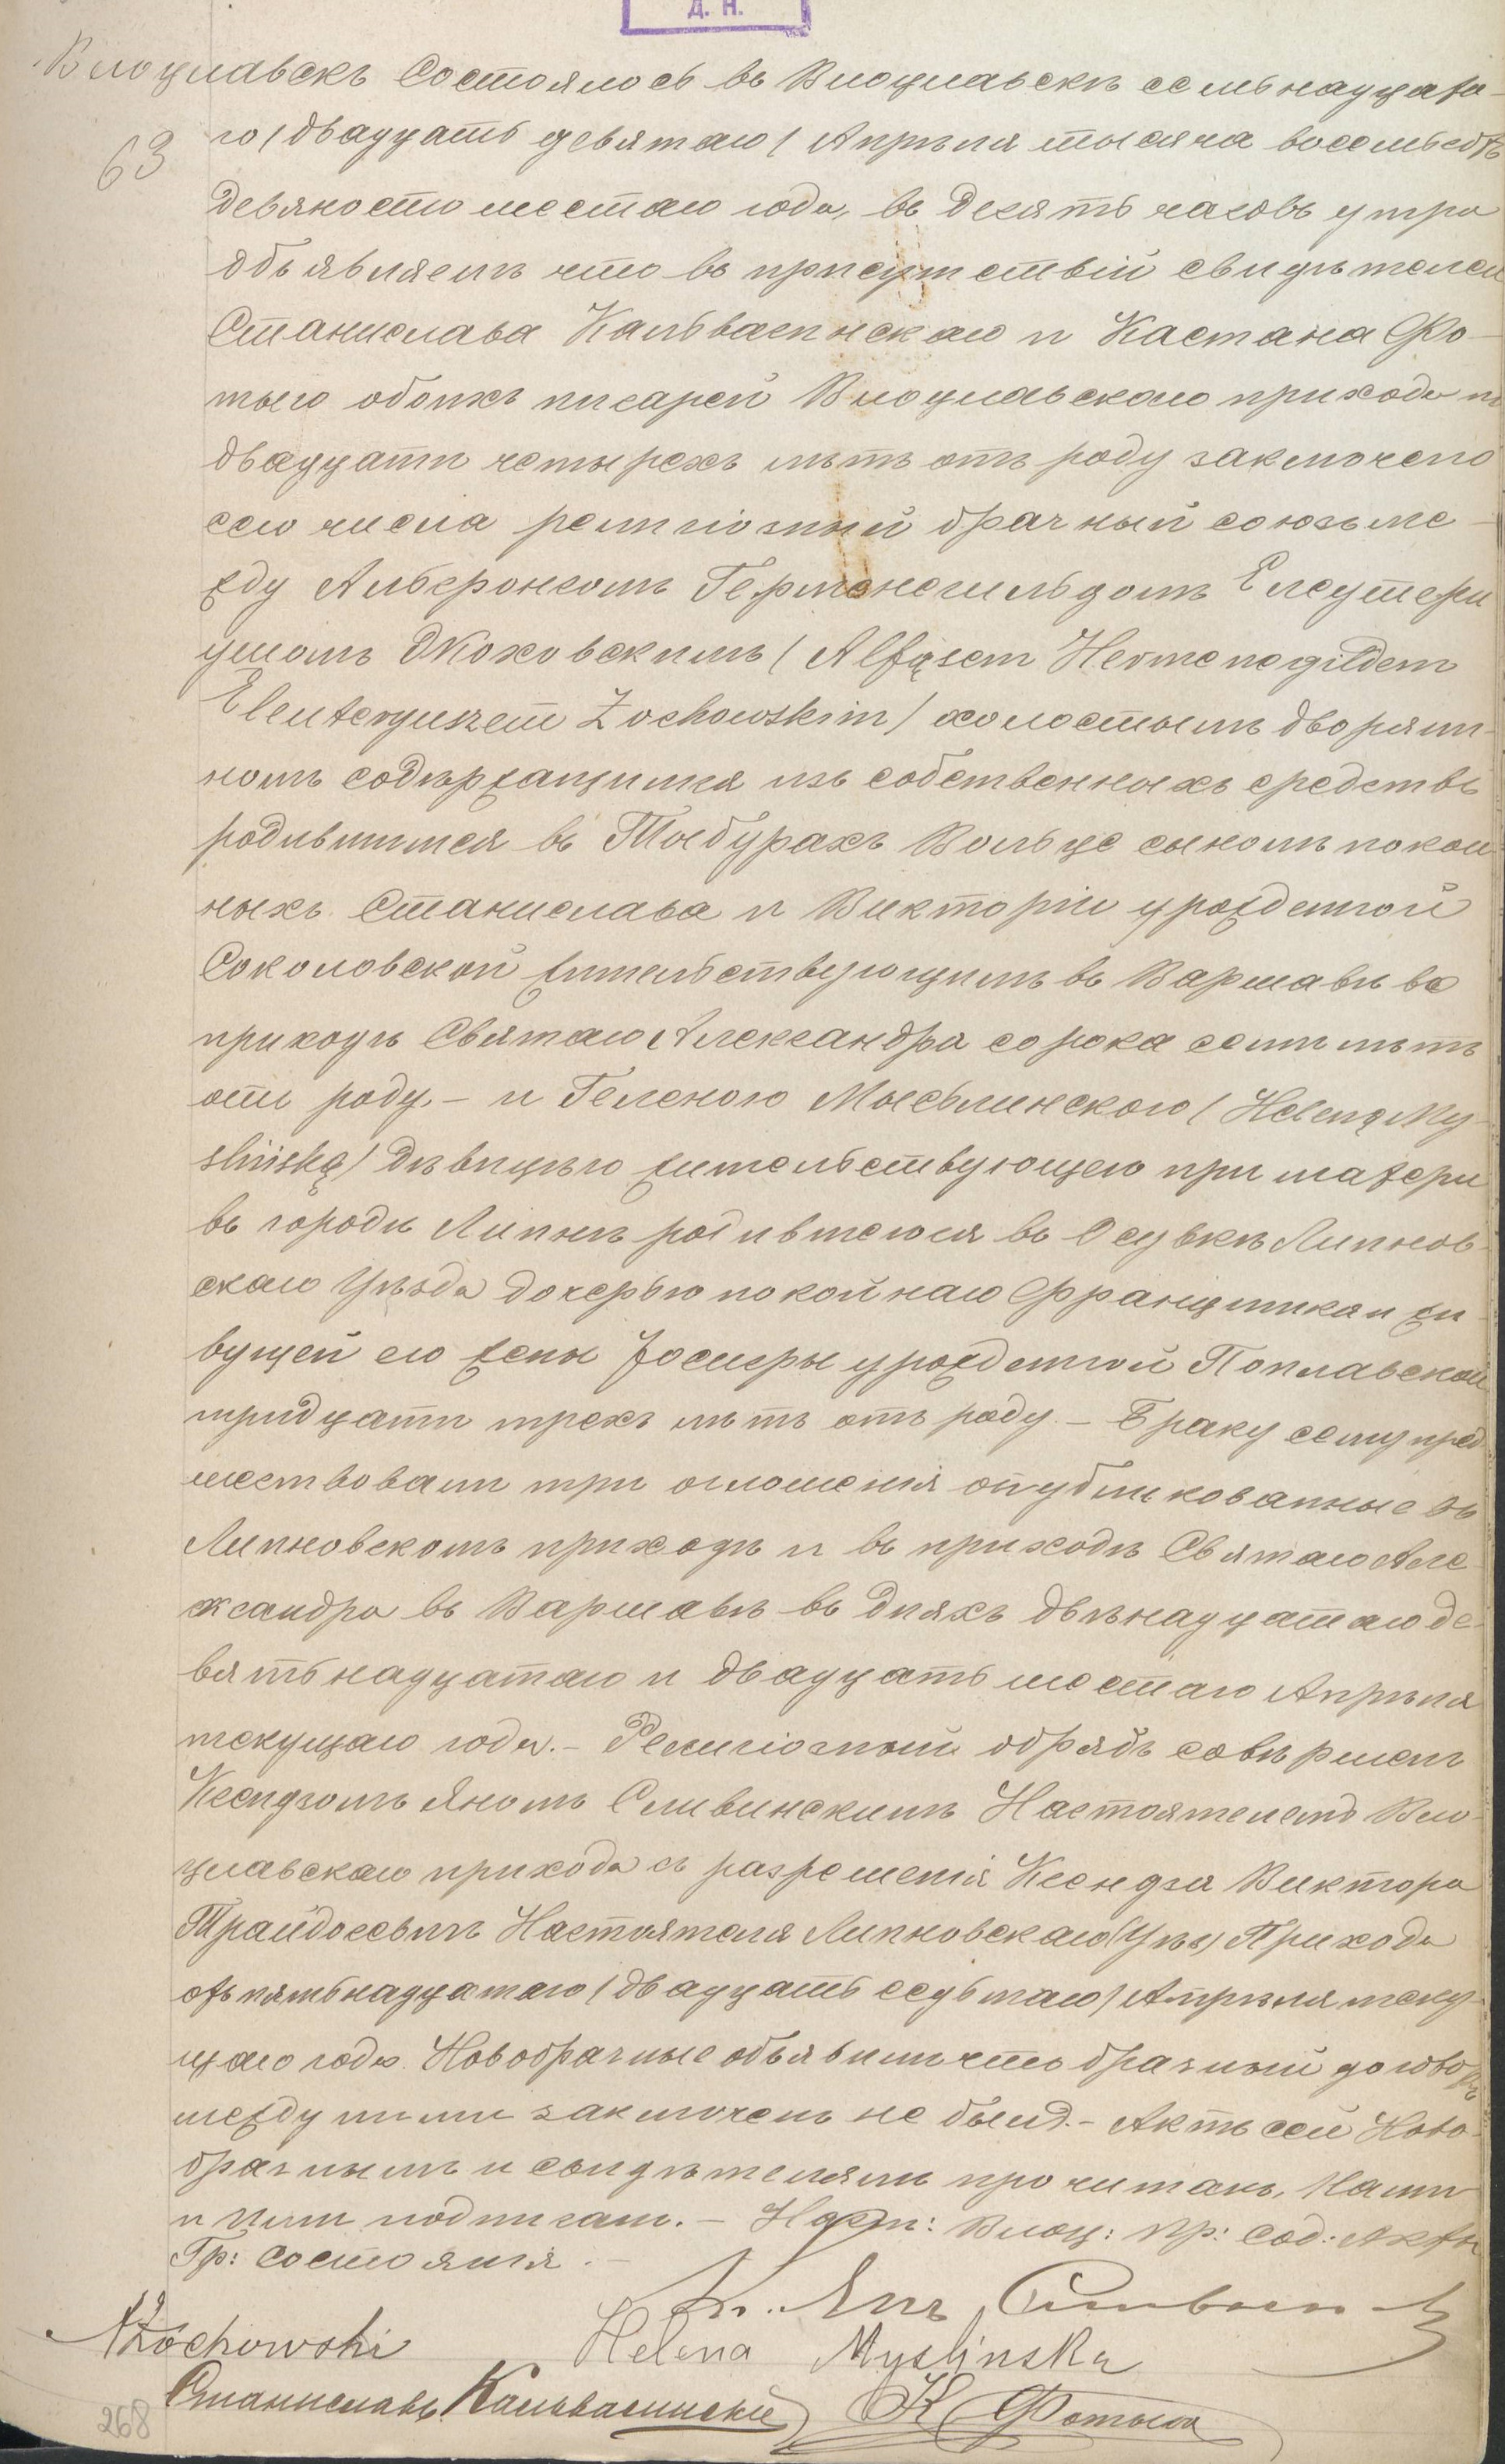 Д. Н.
Влоцлавскъ Состоялось въ Влоцлавскѣ семьнадцата-
63 го /двадцать девятаго/ Апрѣля тысяча восемьсотъ
девяносто шестаго года, въ десять часовъ утра
Объявляемъ что въ присутствій свидѣтелей
Станислава Кальвасинскаго и Каетана Фо-
тыго обоихъ писарей Влоцлавскаго прихода по
двадцати четырехъ лѣтъ отъ роду заключено
сего числа религіозный брачный союзъ ме-
жду Гермонегильдомъ Елеутери
ушомъ Жоховскимъ / Alfąsem Hermenegildem
Eleuteryuszem Żochowskim / холостымъ дворяни-
номъ содѣржащимся изъ собственныхъ средствъ
родившимся въ Вольце сыномъ покой
ныхъ Станислава и Викторіи урожденной
Соколовской жительствующимъ въ Варшавѣ въ
приходѣ Святаго Александра сорока семи лѣтъ
отъ роду, – и Геленою Мысьлинскою / Heleną My-
slińską / дѣвицѣю жительствующею при матери
въ городѣ Липнѣ родившеюся въ Осувкѣ Липнов-
скаго Уѣзда дочерью покойнаго Францишка и жи-
вущей его жены Юзефы урожденной Поплавской
тридцати трехъ лѣтъ отъ роду. – Браку сему пред
шествовали три оглошенія опубликованные въ
Липновскомъ приходѣ и въ приходѣ Святаго Але-
ксандра въ Варшавѣ въ дняхъ двѣнадцатаго де-
вятьнадцатаго и двадцать шестаго Апрѣля
текущаго года. – Религіозный обрядъ совѣршенъ
Ксендзомъ Яномъ Сливинскимъ Настоятелемъ Вло-
цлавскаго прихода съ разрешенія Ксендза Виктора
Настоятеля Липновскаго Прихода
отъ пятьнадцатаго /двадцать седьмаго/ Апрѣля теку-
щаго года. Новобрачные объявили что брачный договоръ
между ними заключенъ не былъ. – Актъ сей Ново-
брачнымъ и свидѣтелямъ прочитанъ, Нами
и ими подписанъ. – Наст: Влоц: пр: Сод: Акты
Гр: Состоянія. –
К. Янъ Сливински
AŻochowski Helena Myslinska
Станиславъ Кальвасинскій К Фотыга
268